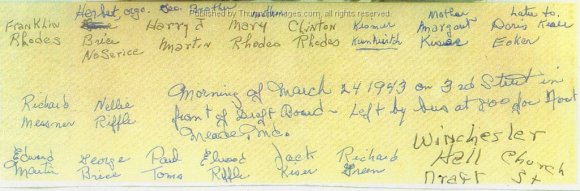 Published by Thu images.com, all rights reserved.
Herbert, age. Geo. Brother mother Mother Late to.
Franklin Brice Harry J Mary Clinton Margaret Doris Kiser
Rhodes NoService Martin Rhodes Rhodes Ecker
Morning of March 24 1943 on 3rd Street in
Richard Nellie front of Draft Board - Left by bus at 800 for Fort
Messner Riffle Meade, Md.
Edward George Paul Elwood Jack Richard Winchester
Martin Brice Toms Riffle Kiser Green Hall Church
Draft St